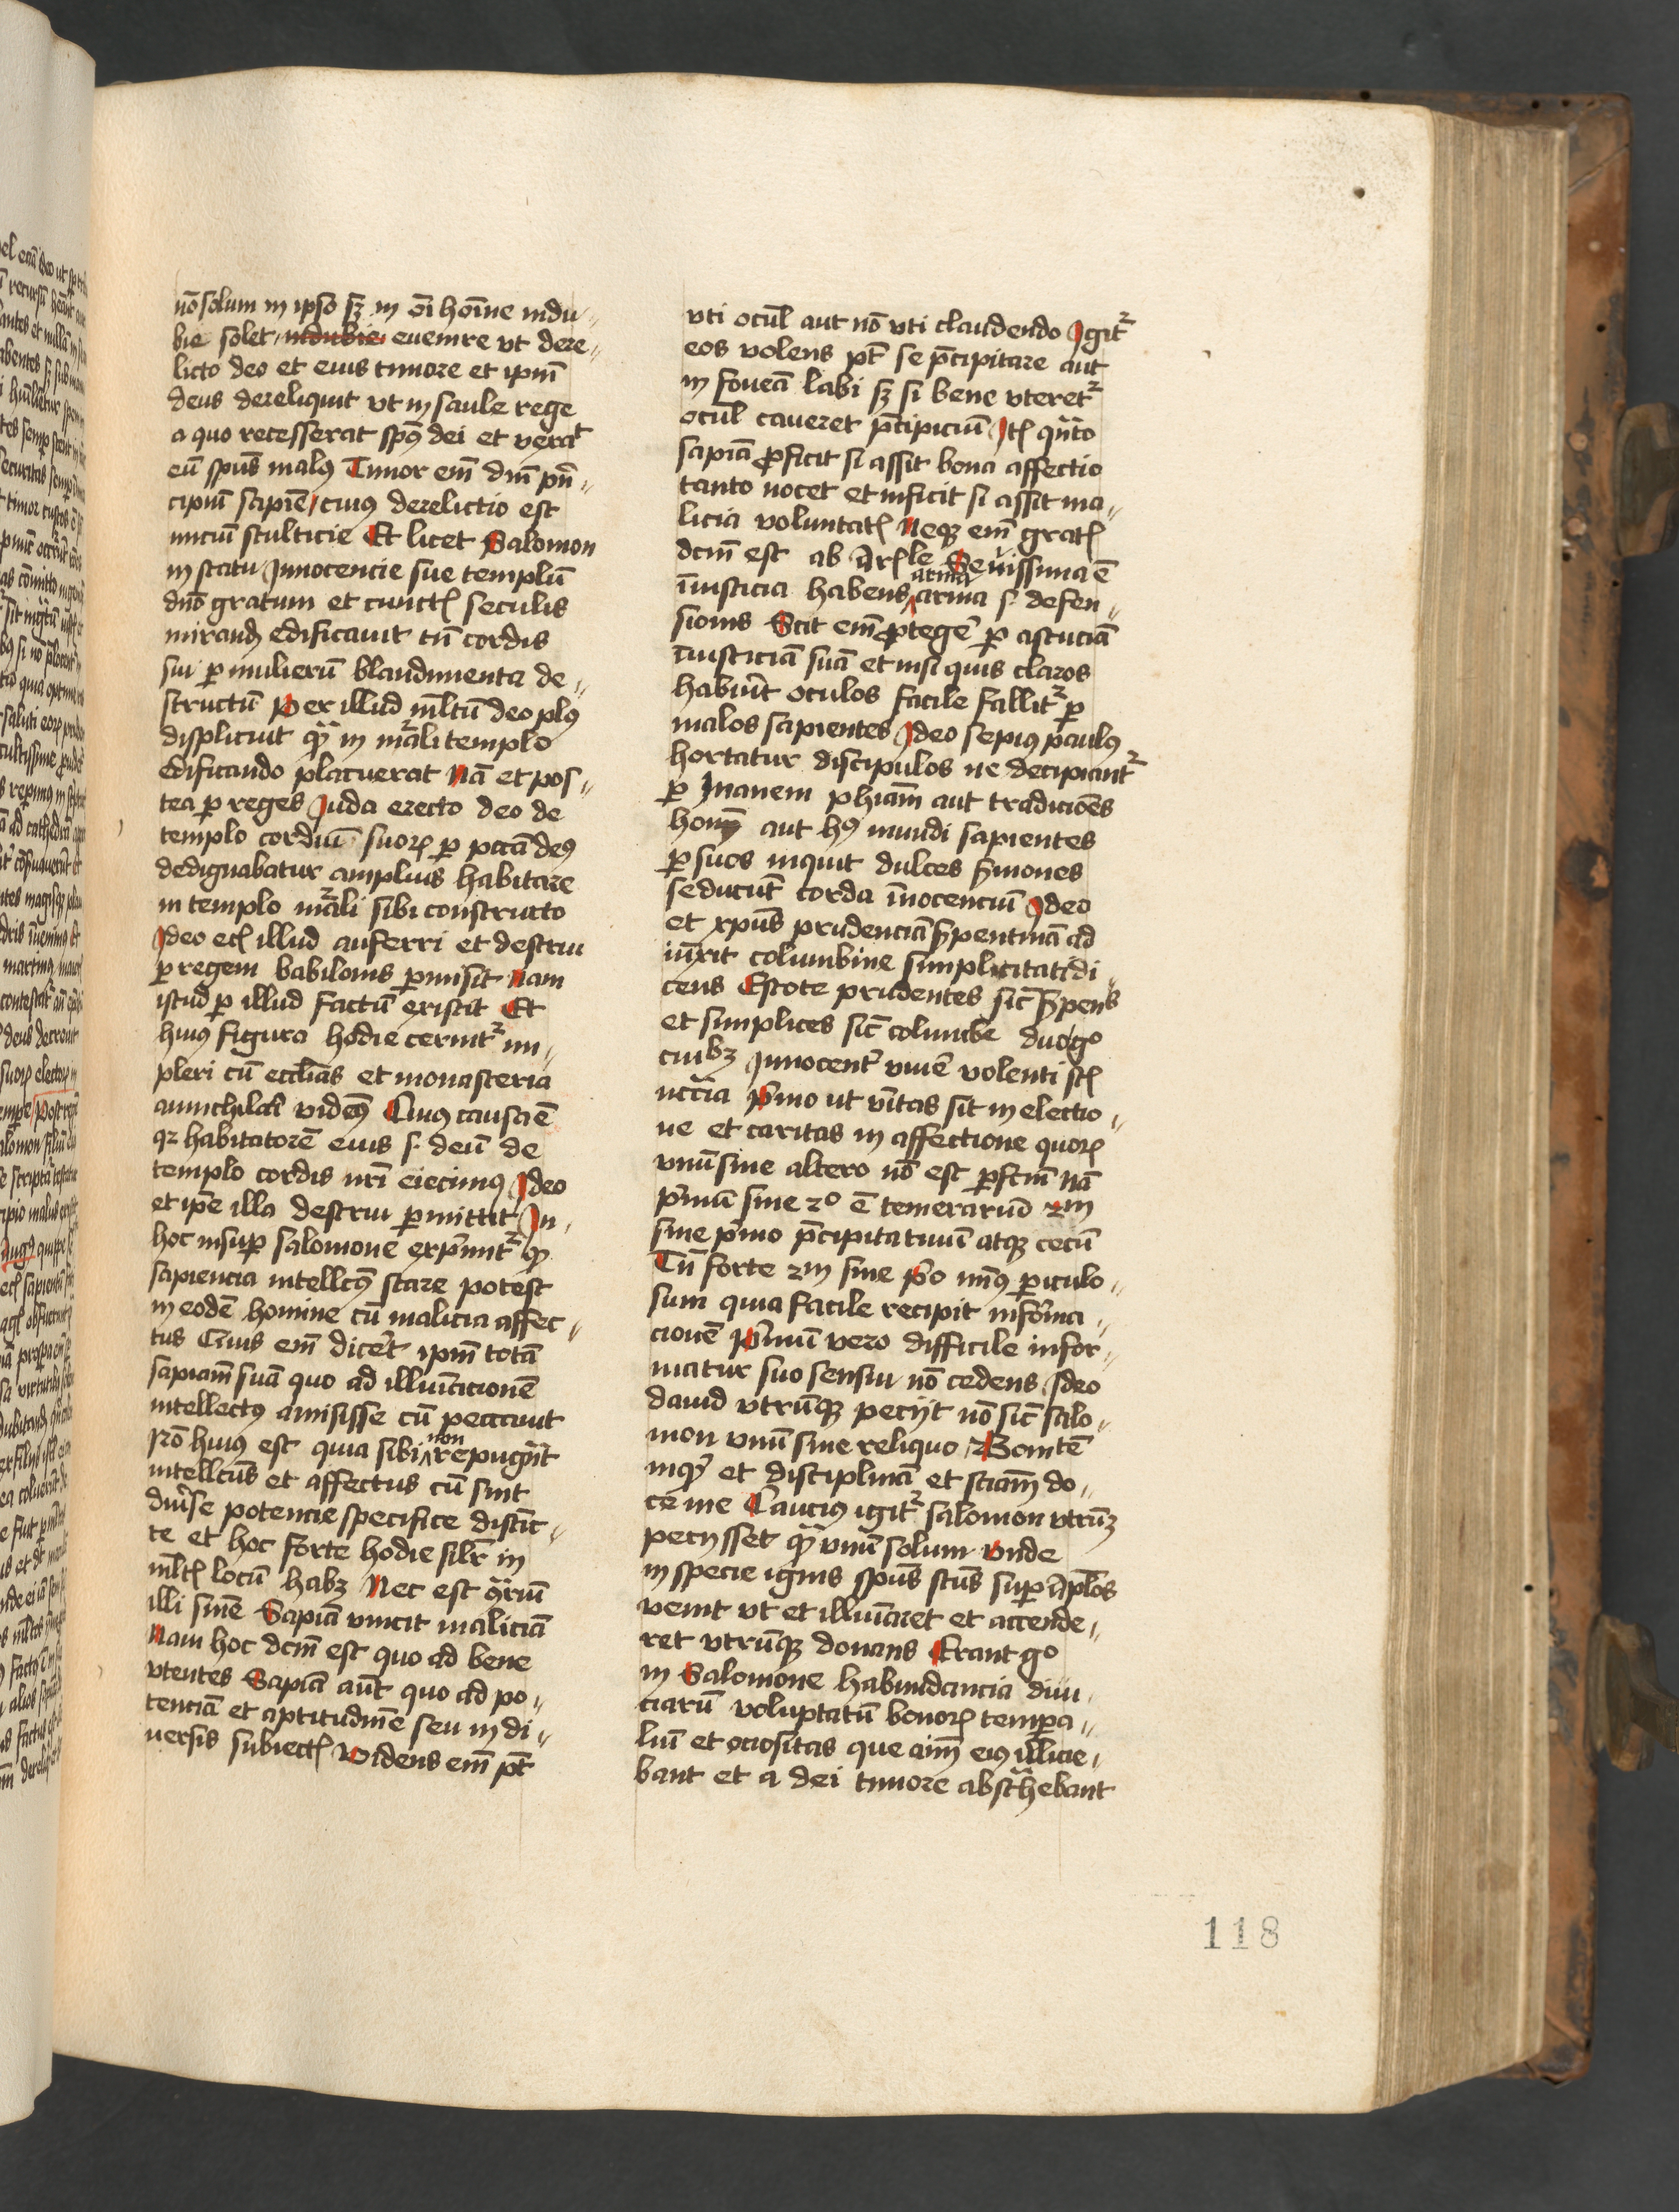 nō solum in ipso sʒ in oī hoīne indu„
bie solet indubie euenire vt dere„
licto deo et eius timore et ipm̄
deus dereliquit vt in saule rege
a quo recesserat spūs dei et vexāt
eū spūs malꝰ Timor em̄ dn̄i pn̄„
cipiū sapiē / cuiꝰ derelictio est
iniciū stulticie Et licet Salomon
in statu Innocencie sue templū
dn̄o gratum et cunctꝭ seculis
mirand edificauit tn̄ cordis
sui ꝑ mulierū blandimenta de„
structū Per illud ml̄tū deo plꝰ
displicuit qͣ in māli templo
edificando placuerat Nā et pos„
tea ꝑ reges Juda erecto deo de
templo cordiū suoꝝ ꝑ pctā deꝰ
dedignabatur amplius habitare
in templo māli sibi constructo
Ideo etꝭ illud auferri et destrui
ꝑ regem babilonis ꝑmisit Nam
istud ꝑ illud factū existit Et
huiꝰ figura hodie cernitᷣ im„
pleri cū eccl̄ias et monasteria
annichilari videmꝰ Cuiꝰ causa ē
qꝛ habitatorē eius s. deū de
templo cordis nr̄i eiecimꝰ Ideo
et ipē illa destrui ꝑmittit In„
hoc insuꝑ salomone exprimitᷣ ꝙ
sapiencia intellc̄ꝰ stare potest
in eodē homine cū malicia affec„
tus Cuius em̄ dicēt ipm̄ totā
sapiam̄ suā quo ad illuīacionē
intellectꝰ amisisse cū peccauit
Rō huius est quia sibi non repugn̄t
intellc̄us et affectus cū sint
diūse potencie specifice distīc„
te et hoc forte hodie silr̄ in
ml̄tꝭ locū habʒ Nec est 9̄riū
illi sn̄ie Sapiā vincit maliciā
Nam hoc dcm̄ est quo ad bene
vtentes Sapiā aūt quo ad po„
tenciā et aptitudinē seu in di„
uersis subiectꝭ Videns em̄ pt̄
vti ocul̄ aut nō vti claudendo Igitᷣ
eos volens pt̄ se p̄cipitare aut
in foueā labi sʒ si bene vteretᷣ
ocul̄ caueret p̄cipiciū Itꝭ qn̄to
sapiā ꝓficit si assit bona affectio
tanto nocet et inficit si assit ma„
licia voluntatꝭ Neqꝫ em̄ gratꝭ
dcm̄ est ab Ar̄ꝭle Seuissima ē
īiusticia habens arma arma s. defen„
sionis Scit em̄ ꝓtegē ꝑ astuciā
īiusticiā suā et nisi quis claros
habuīt oculos facile fallitᷣ ꝑ
malos sapientes Ideo sepiꝰ paulꝰ
hortatur discipulos ne decipiantᷣ
ꝑ Inanem phiam̄ aut tradicōnes
hoīm aut hꝰ mundi sapientes
ꝑ suos inquit dulces s̄mones
seducūt corda īnocenciū Ideo
et xp̄us prudenciā s̄pentinā ad
iūxit columbine simplicitati di„
cens Estote prudentes sic̄ s̄pens
et simplices sic̄ columbe duo go
cuibʒ Innocent̄ viuē volenti st̄
nccīa Primo ut vītas sit in electio„
ne et caritas in affectione quoꝝ
vnū sine altero nō est ꝑfcm̄ Nā
pͥmū sine 2º ē temerariū 2m
sine pͥmo p̄cipitatiuū atqꝫ cecū
Tn̄ forte 2m sine pͥo minꝰ ꝑiculo„
sum quia facile recipit informa„
cionē Primū vero difficile infor„
matur suo sensui nō cedens Ideo
dauid vtrūqꝫ peciit nō sic̄ salo„
mon vnū sine reliquo / Bonitē
inqͥ et disciplinā et sciam̄ do„
ce me Cauciꝰ igitᷣ salomon vtrūqʒ
peciisset qͣ vnū solum Vnde
in specie ignis spūs scūs suꝑ apl̄os
venit vt et illuīaret et accende„
ret vtrūqꝫ donans Erant go
in Salomone habundancia diui„
ciarū voluptatū bonoꝝ tempora„
liū et ociositas que aīm̄ eiꝰ illicie„
bant et a dei timore abst̄hebant
118